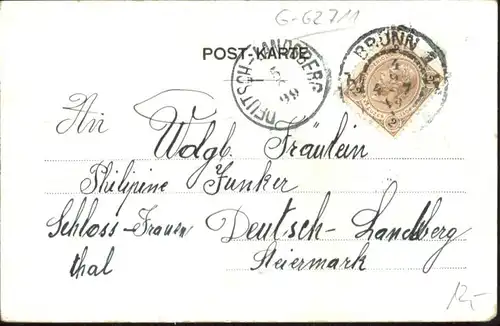 G-G2711
POST-KARTE
DEUTSCH-LANDSBERG
99
BRÜNN 1
An
Wolgb. Fräulein
Philipine Junker
Schloss-Frauen Deutsch-Landsberg
thal Steiermark
12,-